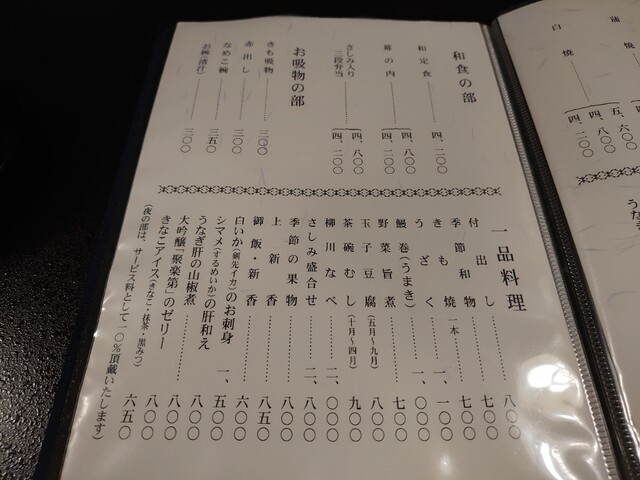 蒲焼
五、六〇〇
白焼
四、八〇〇
和食の部
和定食 四、二〇〇
幕の内 四、八〇〇
四、二〇〇
さしみ入り
三段弁当 四、八〇〇
四、二〇〇
お吸物の部
きも吸物 三〇〇
赤出し 三〇〇
なめこ椀 三五〇
お椀(清汁) 三〇〇
一品料理
付出し 八〇〇
季節和物 七〇〇
きも焼 一本
うざく 一、一〇〇
鰻巻(うまき) 一、〇〇〇
野菜旨煮 七〇〇
玉子豆腐(五月〜九月) 八〇〇
茶碗むし(十月〜四月) 九〇〇
柳川なべ 二、〇〇〇
さしみ盛合せ 二、八〇〇
季節の果物 八〇〇
上新香 八五〇
御飯・新香 六〇〇
白いか(剣先イカ)のお刺身 一、五〇〇
シマメ(するめいか)の肝和え 八〇〇
うなぎ肝の山椒煮 八〇〇
大吟醸「聚楽第」のゼリー 八〇〇
きなこアイス(きなこ・抹茶・黒みつ) 六五〇
(夜の部は、サービス料として一〇%頂戴いたします)